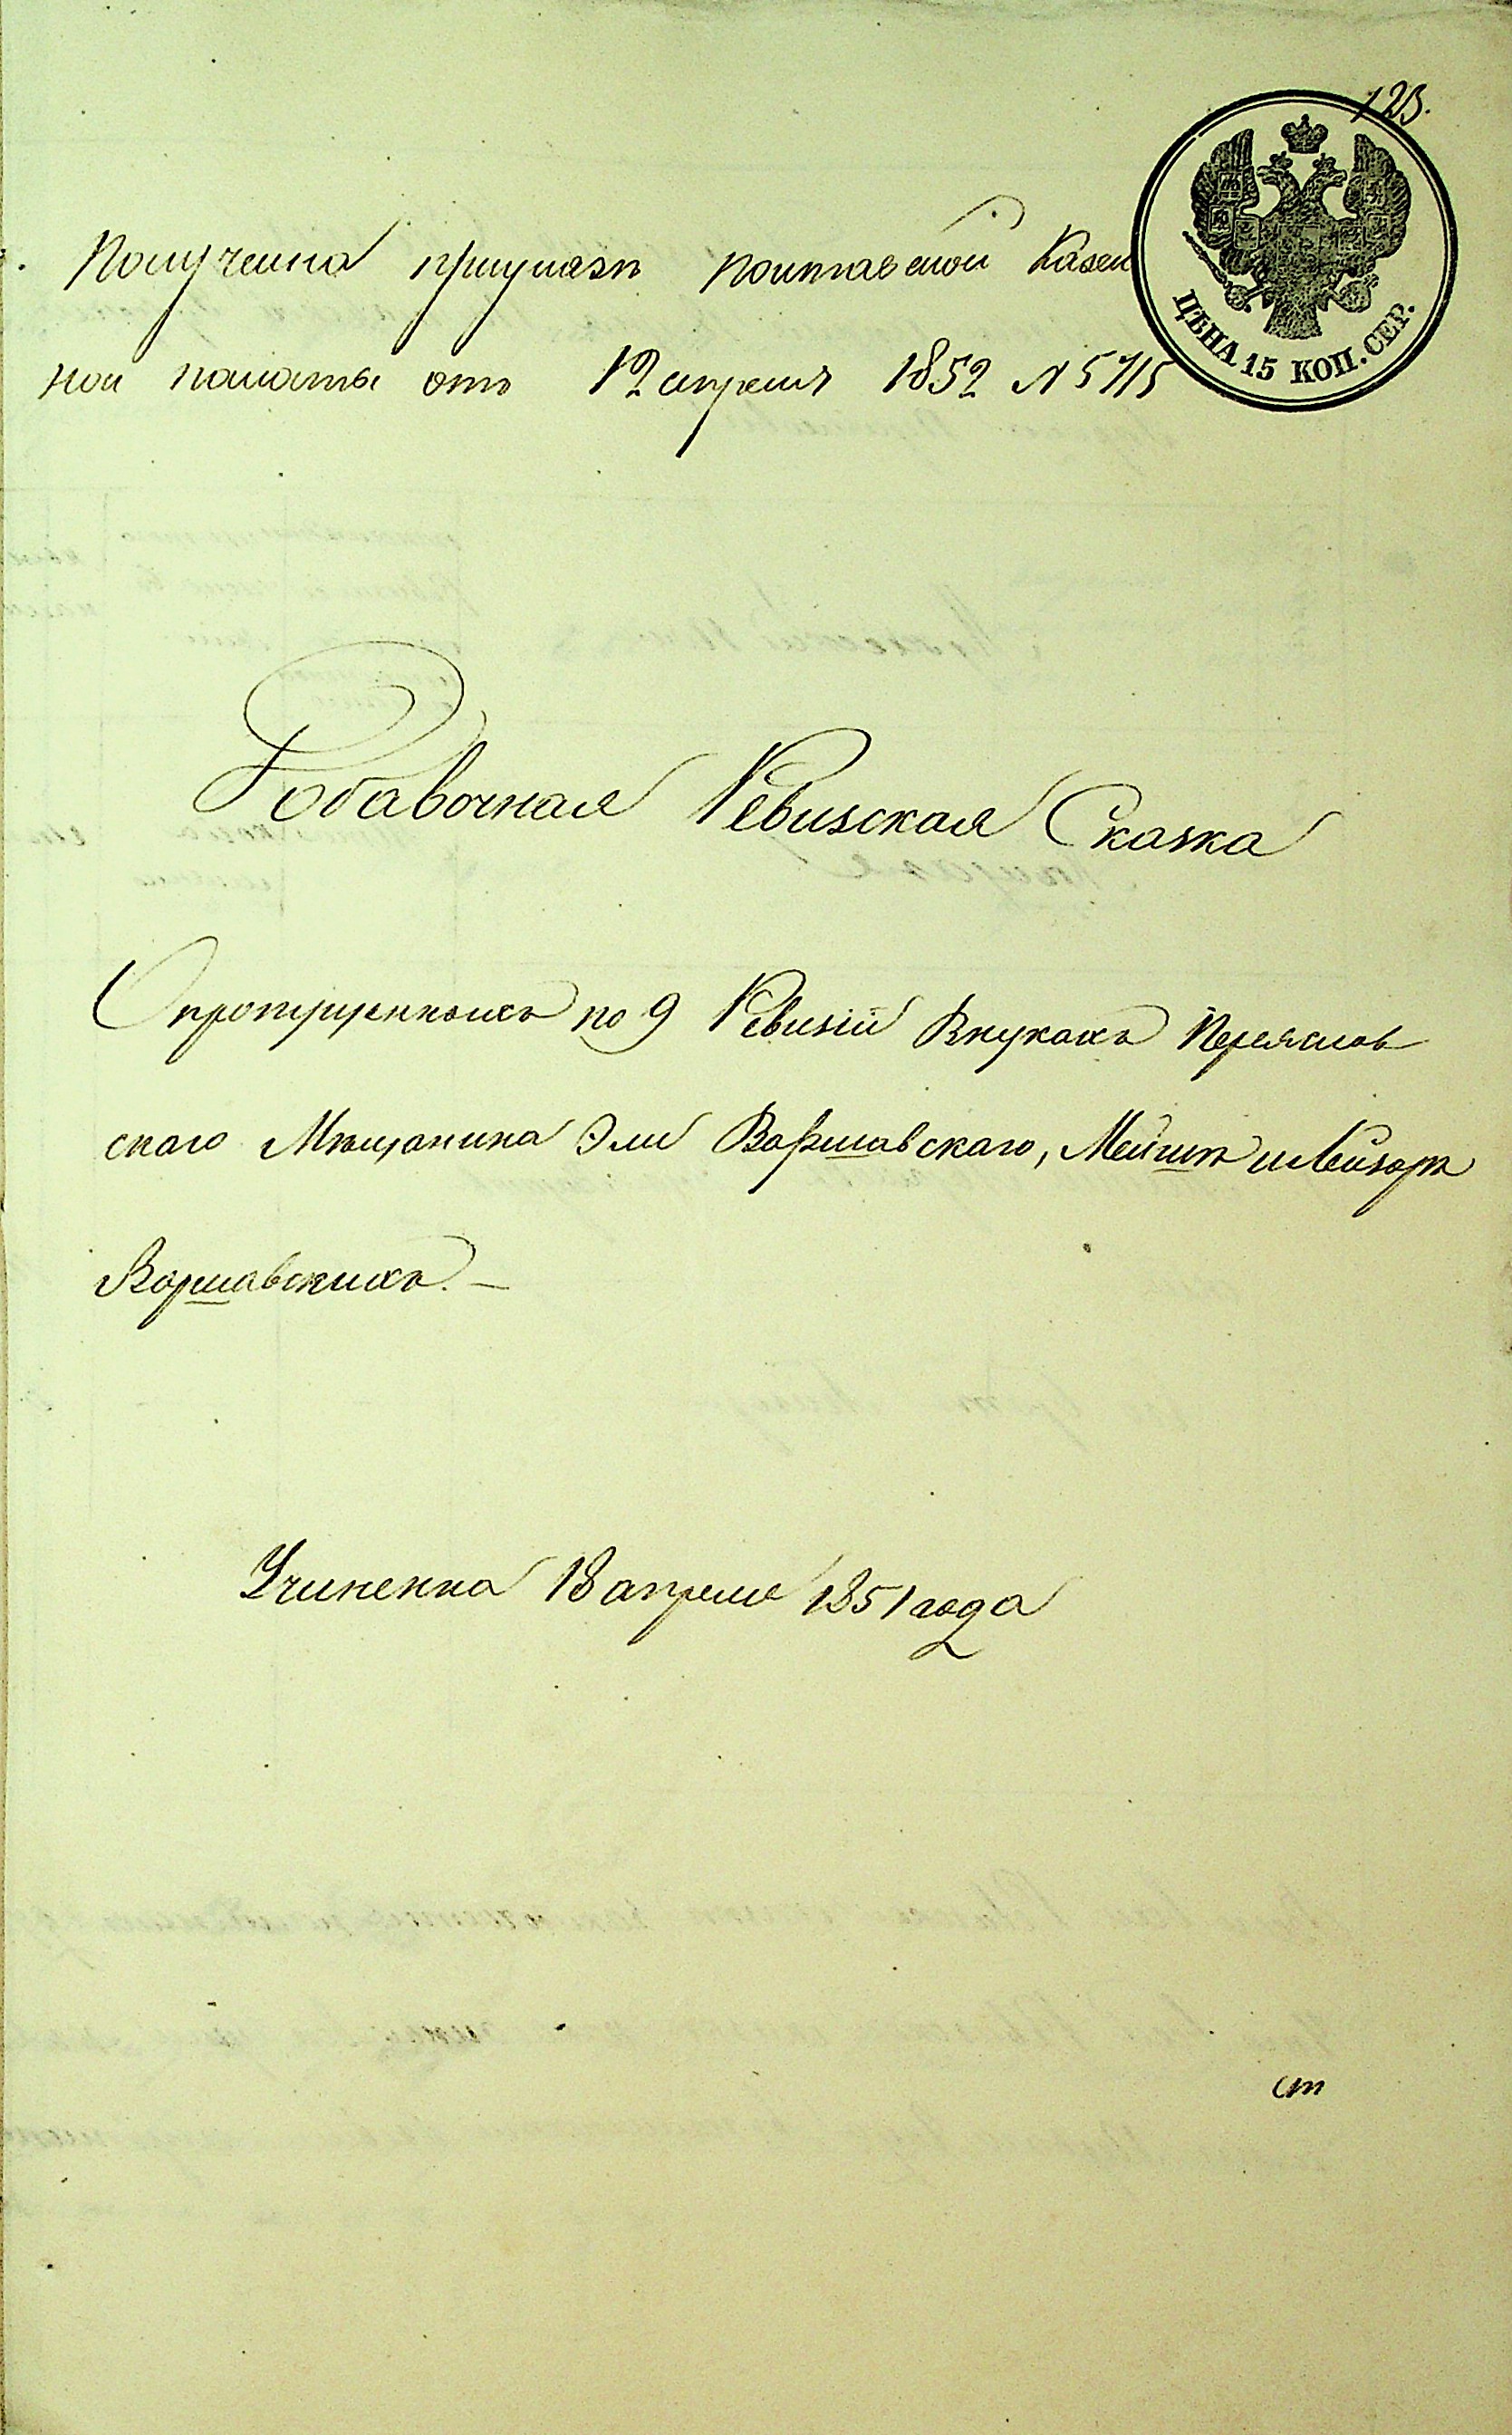 123.
ЦѢНА 15 КОП. СЕР.
Полученна приуказѣ полтавской Казен
ной палаты отъ 12 апреля 1852 N 5715
Добавочная Ревизская Сказка
О пропущенныхъ по 9 Ревизіи Внукахъ Переяслов
скаго Мѣщанина Эли Варшавскаго, Мейшѣ и Лейзерѣ
Варшавскихъ. —
Учиненна 18 апреля 1851 года
ст